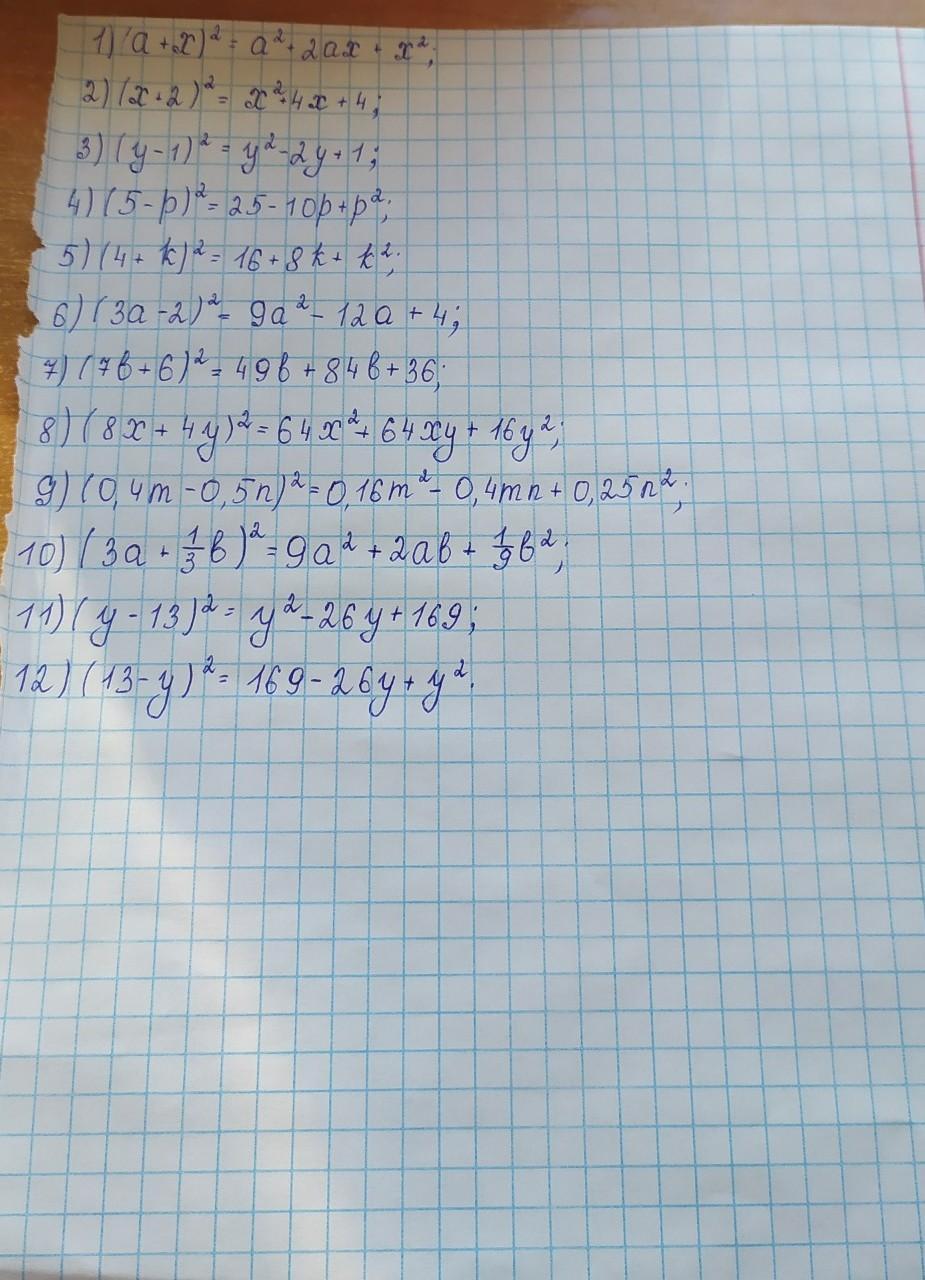 1) (a + x)² = a² + 2ax + x²;
2) (x + 2)² = x² + 4x + 4;
3) (y - 1)² = y² - 2y + 1;
4) (5 - p)² = 25 - 10p + p²;
5) (4 + k)² = 16 + 8k + k²;
6) (3a - 2)² = 9a² - 12a + 4;
7) (7b + 6)² = 49b + 84b + 36;
8) (8x + 4y)² = 64x² + 64xy + 16y²;
9) (0,4m - 0,5n)² = 0,16m² - 0,4mn + 0,25n²;
10) (3a + 1/3 b)² = 9a² + 2ab + 1/9 b²;
11) (y - 13)² = y² - 26y + 169;
12) (13 - y)² = 169 - 26y + y².